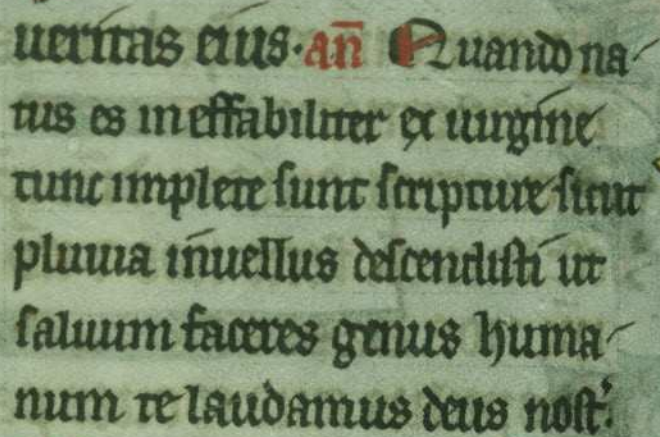 ueritas eius. añ Quando na
tus es ineffabiliter ex uirgine
tunc implete sunt scripture sicut
pluuia inuellus descendisti ut
saluum faceres genus huma
num te laudamus deus nost'.